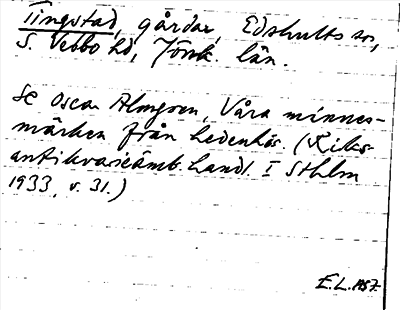 Tingstad, gårdar, Edshults sn,
S. Vedbo hd, Jönk. län.
Se Oscar Almgren, Våra minnes-
märken från hedenhös. (Riks-
antikvarieämb. handl. I Sthlm
1933, s. 31.)
E.L. 1957.